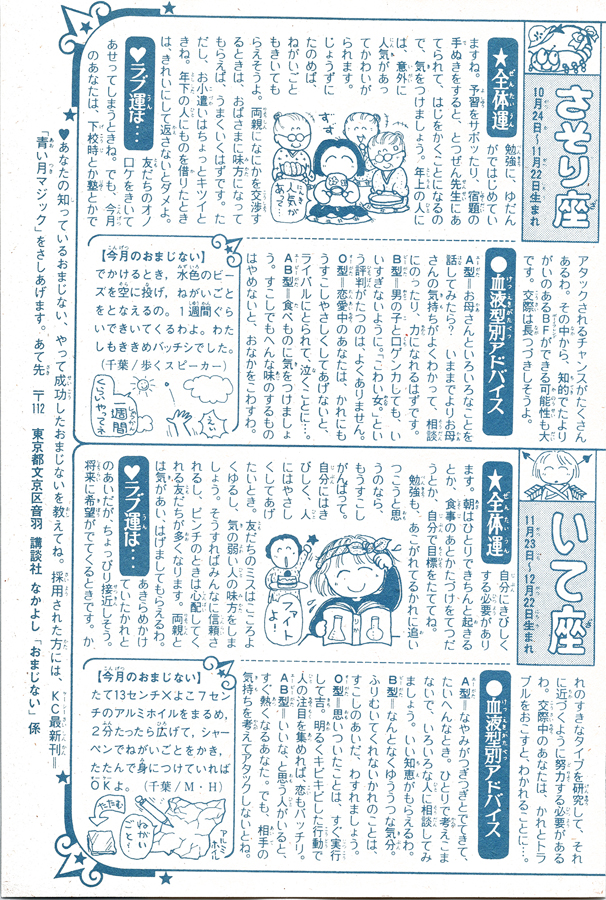 さそり座
10月24日〜11月22日生まれ
★全体運
勉強に、ゆだん
がではじめてい
ますね。予習をサボッたり、宿題の
手ぬきをすると、とつぜん先生にあ
てられて、はじをかくことになるの
で、気をつけましょう。年上の人に
は、意外に
人気があっ
てかわいが
られます。
じょうずに
たのめば、
ねがいごと
もきいても
らえそうよ。両親になにかを交渉す
るときは、おばさまに味方になって
もらえば、うまくいくはずです。た
だし、お小遣いはちょっとキツイと
きね。年下の人にものを借りたとき
は、きれいにして返さないとダメよ。
けっこう
人気が
あって
♥ラブ運は…
友だちのオノ
ロケをきいて
あせってしまうときね。でも、今月
のあなたは、下校時とか塾とかで
アタックされるチャンスがたくさん
あるわ。その中から、知的でたより
がいのあるBFができる可能性も大
です。交際は長つづきしそうよ。
●血液型別アドバイス
A型＝お母さんといろいろなことを
話してみたら？　いままでよりお母
さんの気持ちがよくわかって、相談
にのったり、力になれるはずです。
B型＝男の子と口ゲンカしても、い
いすぎないように。「こわい女。」とい
う評判がたつのは、よくありません。
O型＝恋愛中のあなたは、かれにも
うすこしやさしくしてあげないと、
ライバルにとられて、泣くことに…。
AB型＝食べものに気をつけましょ
う。すこしでもへんな味のするもの
はやめないと、おなかをこわすわ。
【今月のおまじない】
でかけるとき、水色のビー
ズを空に投げ、ねがいごと
をとなえるの。1週間ぐら
いできいてくるわよ。わた
しもききめバッチシでした。
(千葉/歩くスピーカー)
一週間
くらいやってネ
いて座
11月23日〜12月22日生まれ
★全体運
自分にきびしく
する必要があり
ます。朝はひとりできちんと起きる
とか、食事のあとかたづけをてつだ
うとか、自分で目標をたててね。
勉強も、あこがれてるかれに追い
つこうと思
うのなら、
もうすこし
がんばって。
自分にはき
びしく、人
にはやさし
くしてあげ
たいとき。友だちのミスはこころよ
くゆるし、気の弱い人の味方をしま
しょう。そうすればみんなに信頼さ
れるし、ピンチのときは心配してく
れる友だちが多くなります。両親と
は気があい、はげましてもらえるわ。
ファイト
よ！
りか
♥ラブ運は…
あきらめかけ
ていたかれと
のあいだが、ちょっぴり接近しそう。
将来に希望がでてくるときです。か
れのすきなタイプを研究して、それ
に近づくように努力する必要がある
わ。交際中のあなたは、かれとトラ
ブルをおこすと、わかれることに…。
●血液型別アドバイス
A型＝なやみがつぎつぎとでてきて、
たいへんなとき。ひとりで考えこま
ないで、いろいろな人に相談してみ
ましょう。いい知恵がもらえるわ。
B型＝なんとなくゆううつな気分。
ふりむいてくれないかれのことは、
すこしのあいだ、わすれましょう。
O型＝思いついたことは、すぐ実行
して吉。明るくキビキビした行動で
人の注目を集めれば、恋もバッチリ。
AB型＝いいな、と思う人がいると、
すぐ熱くなるあなた。でも、相手の
気持ちを考えてアタックしないとね。
【今月のおまじない】
たて13センチ×よこ7セン
チのアルミホイルをまるめ、
2分たったら広げて、シャー
ペンでねがいごとをかき、
たたんで身につけていれば
OKよ。(千葉/M・H)
たたむ
ねがい
ごと♡
アルミ
ホイル
♥あなたの知っているおまじない、やって成功したおまじないを教えてね。採用された方には、KC最新刊＝
「青い月マジック」をさしあげます。あて先　〒112　東京都文京区音羽　講談社　なかよし「おまじない」係